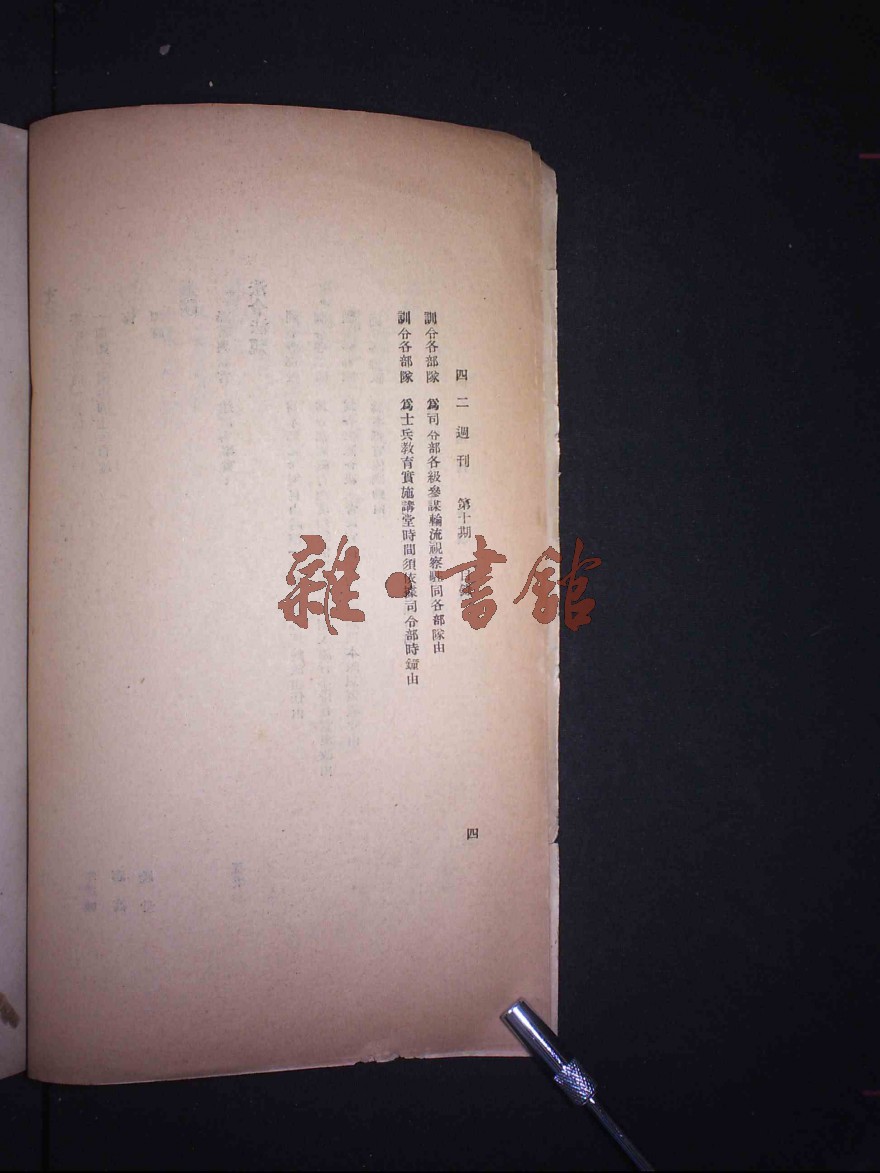 四二週刊 第十期 目錄 四
訓令各部隊 為司令部各級參謀輪流視察駐同各部隊由
訓令各部隊 為士兵教育實施講堂時間須依據司令部時鐘由
雜·書館